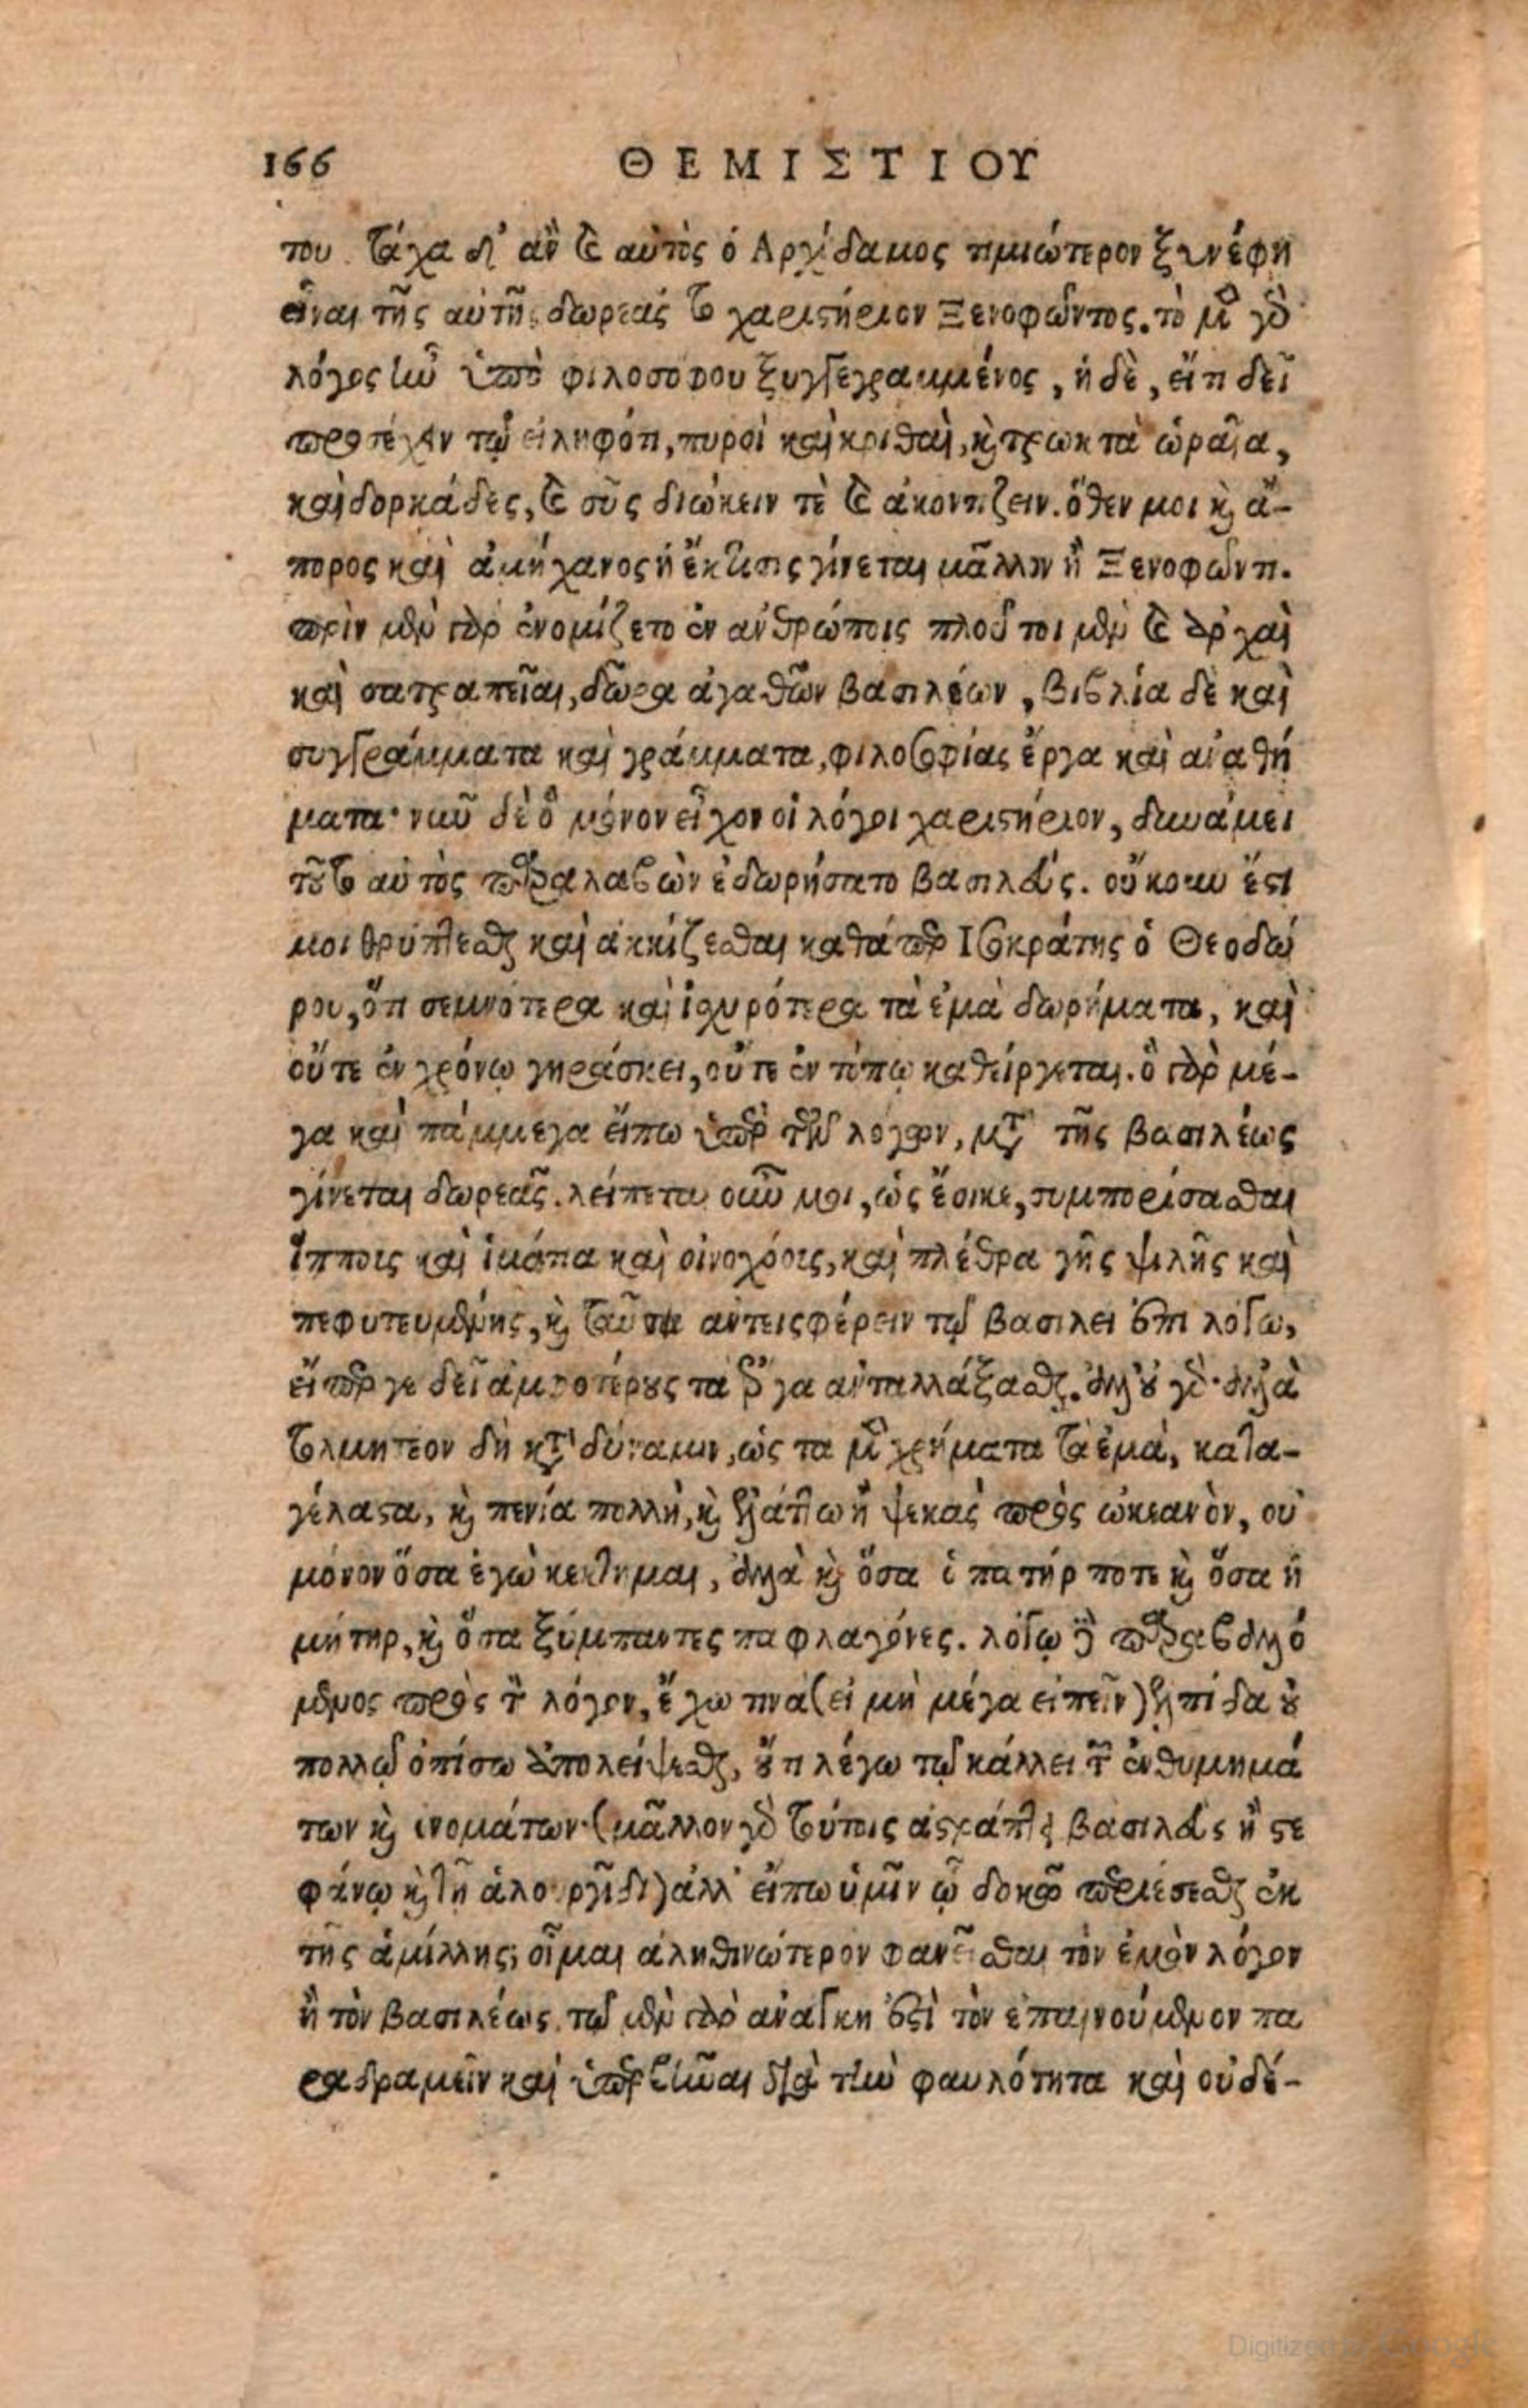 166 ΘΕΜΙΣΤΙΟΥ
του. τάχα δ' ἂν καὶ αὐτὸς ὁ Ἀρχίδαμος τιμιώτερον ξυνέφη
εἶναι τῆς αὑτῆς δωρεᾶς τὸ χαριστήριον Ξενοφῶντος. τὸ μὲν γὰρ
λόγος ἦν ὑπὸ φιλοσόφου ξυγγεγραμμένος, ἡ δὲ, εἴ τι δεῖ
προσέχειν τῷ εἰληφότι, πυροὶ καὶ κριθαὶ, καὶ τρωκτὰ ὡραῖα,
καὶ δορκάδες, καὶ σῦς διώκειν τὲ καὶ ἀκοντίζειν. ὅθεν μοι καὶ ἄ-
πορος καὶ ἀμήχανος ἡ ἔκτισις γίνεται μᾶλλον ἢ Ξενοφῶντι.
πρὶν μὲν γὰρ ἐνομίζετο ἐν ἀνθρώποις πλοῦτοι μὲν καὶ ἀρχαὶ
καὶ σατραπεῖαι, δῶρα ἀγαθῶν βασιλέων, βιβλία δὲ καὶ
συγγράμματα καὶ γράμματα, φιλοσοφίας ἔργα καὶ ἀναθή
ματα· νῦν δὲ ὃ μόνον εἶχον οἱ λόγοι χαριστήριον, δυνάμει
τοῦτο αὐτὸς προλαβὼν ἐδωρήσατο βασιλεύς. οὔκουν ἔστι
μοι θρύπτεσθαι καὶ ἀκκίζεσθαι καθάπερ Ἰσοκράτης ὁ Θεοδώ
ρου, ὅτι σεμνότερα καὶ ἰσχυρότερα τὰ ἐμὰ δωρήματα, καὶ
οὔτε ἐν χρόνῳ γηράσκει, οὔτε ἐν τόπῳ καθείργεται. ὃ γὰρ μέ-
γα καὶ πάμμεγα εἴπω ὑπὲρ τῶν λόγων, μετὰ τῆς βασιλέως
γίνεται δωρεᾶς. λείπεται οὖν μοι, ὡς ἔοικε, συμπορίσασθαι
ἵππους καὶ ἱμάτια καὶ οἰνοχόους, καὶ πλέθρα γῆς ψιλῆς καὶ
πεφυτευμένης, καὶ ταῦτα ἀντεισφέρειν τῷ βασιλεῖ ἐπὶ λόγῳ,
εἴπερ γε δεῖ ἀμφοτέρους τὰ ἔργα ἀνταλλάξασθαι. ἀλλ' οὐ γὰρ· ἀλλὰ
τολμητέον δὴ κατὰ δύναμιν, ὡς τὰ μὲν χρήματα τὰ ἐμὰ, κατα-
γέλαστα, καὶ πενία πολλὴ, καὶ ἐλάττω ἢ ψεκὰς πρὸς ὠκεανὸν, οὐ
μόνον ὅσα ἐγὼ κέκτημαι, ἀλλὰ καὶ ὅσα ὁ πατήρ ποτε καὶ ὅσα ἡ
μήτηρ, καὶ ὅσα ξύμπαντες παφλαγόνες. λόγῳ δὲ παραβαλλό
μενος πρὸς τὸν λόγον, ἔχω τινὰ (εἰ μὴ μέγα εἰπεῖν) ἐλπίδα οὐ
πολλῷ ὀπίσω ἀπολείψεσθαι, οὔτι λέγω τῷ κάλλει τῶν ἐνθυμημά
των καὶ ὀνομάτων· (μᾶλλον γὰρ τούτοις ἀστράπτει βασιλεὺς ἢ στε
φάνῳ καὶ τῇ ἁλουργίδι) ἀλλ' εἴπω ὑμῖν ᾧ δοκῶ περιέσεσθαι ἐκ
τῆς ἁμίλλης; οἶμαι ἀληθινώτερον φανεῖσθαι τὸν ἐμὸν λόγον
ἢ τὸν βασιλέως. τῷ μὲν γὰρ ἀνάγκη ἐστὶ τὸν ἐπαινούμενον πα
ραδραμεῖν καὶ ὑπερβῆναι διὰ τὴν φαυλότητα καὶ οὐδέ-